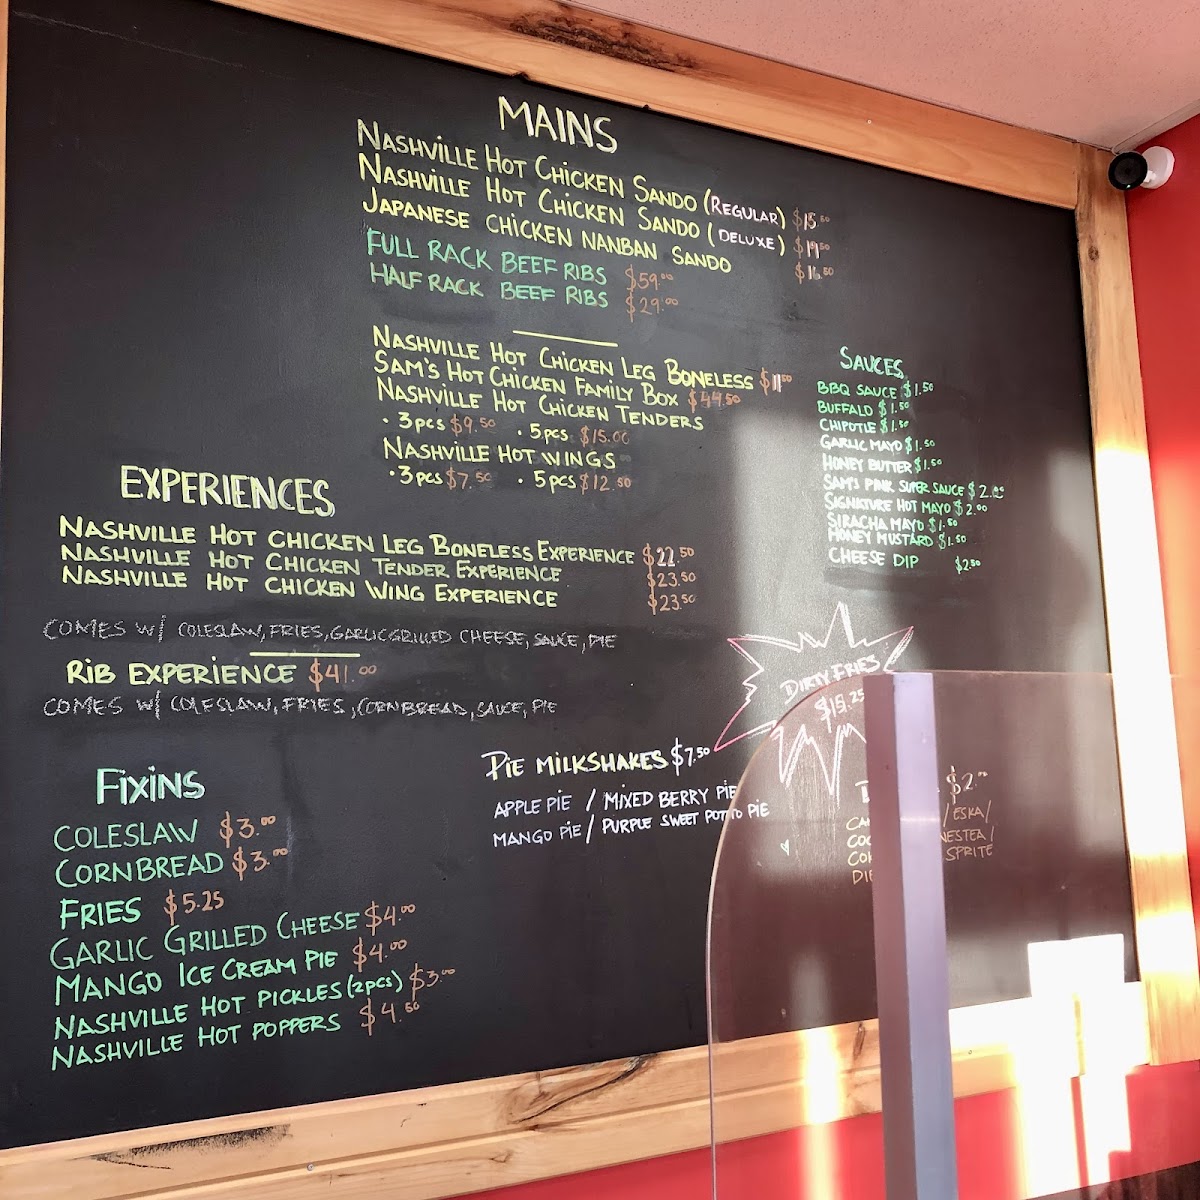 MAINS
NASHVILLE HOT CHICKEN SANDO (REGULAR) $15.50
NASHVILLE HOT CHICKEN SANDO (DELUXE) $19.50
JAPANESE CHICKEN NANBAN SANDO $16.50
FULL RACK BEEF RIBS $59.00
HALF RACK BEEF RIBS $29.00
NASHVILLE HOT CHICKEN LEG BONELESS $11.50
SAM'S HOT CHICKEN FAMILY BOX $44.50
NASHVILLE HOT CHICKEN TENDERS
• 3pcs $9.50 • 5pcs $15.00
NASHVILLE HOT WINGS
• 3pcs $7.50 • 5pcs $12.50
SAUCES
BBQ SAUCE $1.50
BUFFALO $1.50
CHIPOTLE $1.50
GARLIC MAYO $1.50
HONEY BUTTER $1.50
SAM'S PINK SUPER SAUCE $2.00
SIGNATURE HOT MAYO $2.00
SIRACHA MAYO $1.50
HONEY MUSTARD $1.50
CHEESE DIP $2.50
EXPERIENCES
NASHVILLE HOT CHICKEN LEG BONELESS EXPERIENCE $22.50
NASHVILLE HOT CHICKEN TENDER EXPERIENCE $23.50
NASHVILLE HOT CHICKEN WING EXPERIENCE $23.50
COMES W/ COLESLAW, FRIES, GARLIC GRILLED CHEESE, SAUCE, PIE
RIB EXPERIENCE $41.00
COMES W/ COLESLAW, FRIES, CORNBREAD, SAUCE, PIE
DIRTY FRIES
$15.25
FIXINS
COLESLAW $3.00
CORNBREAD $3.00
FRIES $5.25
GARLIC GRILLED CHEESE $4.00
MANGO ICE CREAM PIE $4.00
NASHVILLE HOT PICKLES (2pcs) $3.00
NASHVILLE HOT POPPERS $4.50
PIE MILKSHAKES $7.50
APPLE PIE / MIXED BERRY PIE
MANGO PIE / PURPLE SWEET POTATO PIE
$2.00
/ ESKA /
NESTEA /
SPRITE